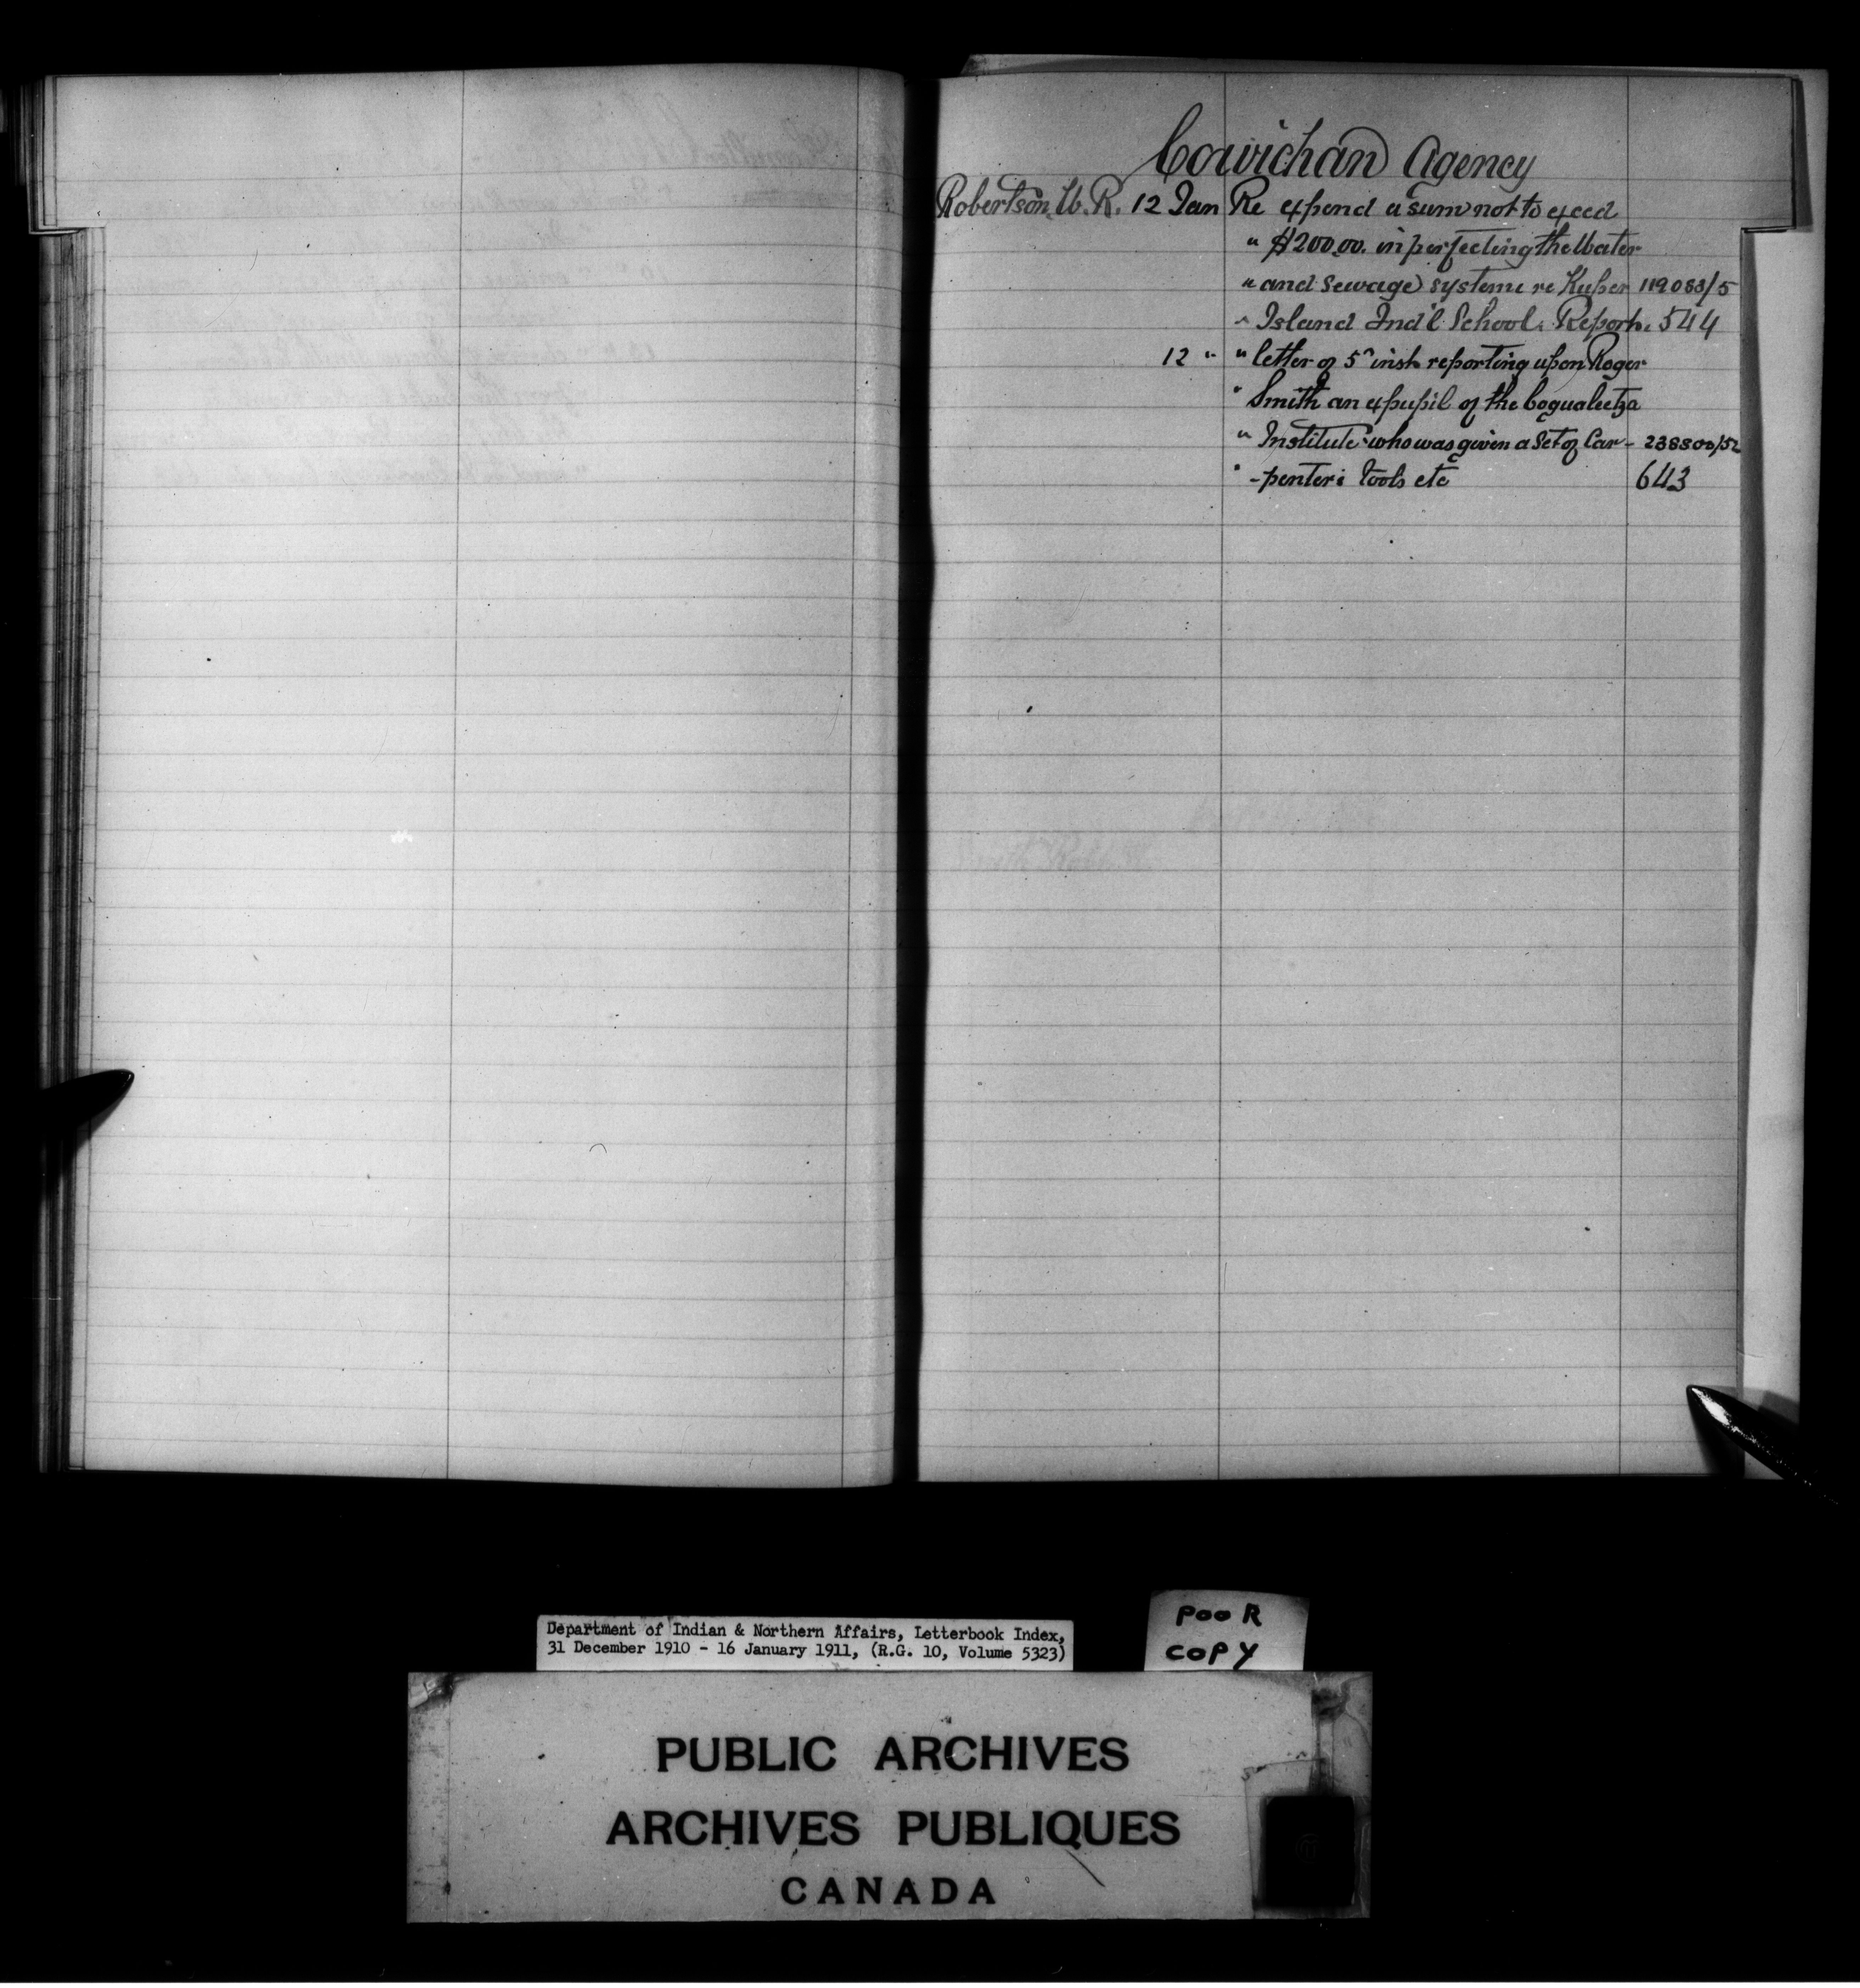 Cowichan Agency
Robertson, W. R. 12 Jan Re expend a sum not to exceed
" $200.00. in perfecting the Water
" and Sewage systems re Kuper 119088/5
" Island Ind'l School. Report. 544
12 " " letter of 5" inst. reporting upon Roger
" Smith an expupil of the Coqualeetza
" Institute who was given a Set of Car- 238800/52
" -penters tools etc 643
Department of Indian & Northern Affairs, Letterbook Index,
31 December 1910 - 16 January 1911, (R.G. 10, Volume 5323)
POOR
COPY
PUBLIC ARCHIVES
ARCHIVES PUBLIQUES
CANADA